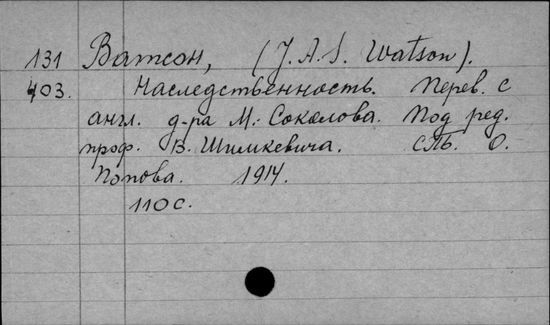 131 Ватсон, (J. A. S. Watson).
403. Наследственность. Перев. с
англ. д-ра М. Соколова. Под ред.
проф. В. Шимкевича. СПб. О.
Попова. 1914.
110 с.